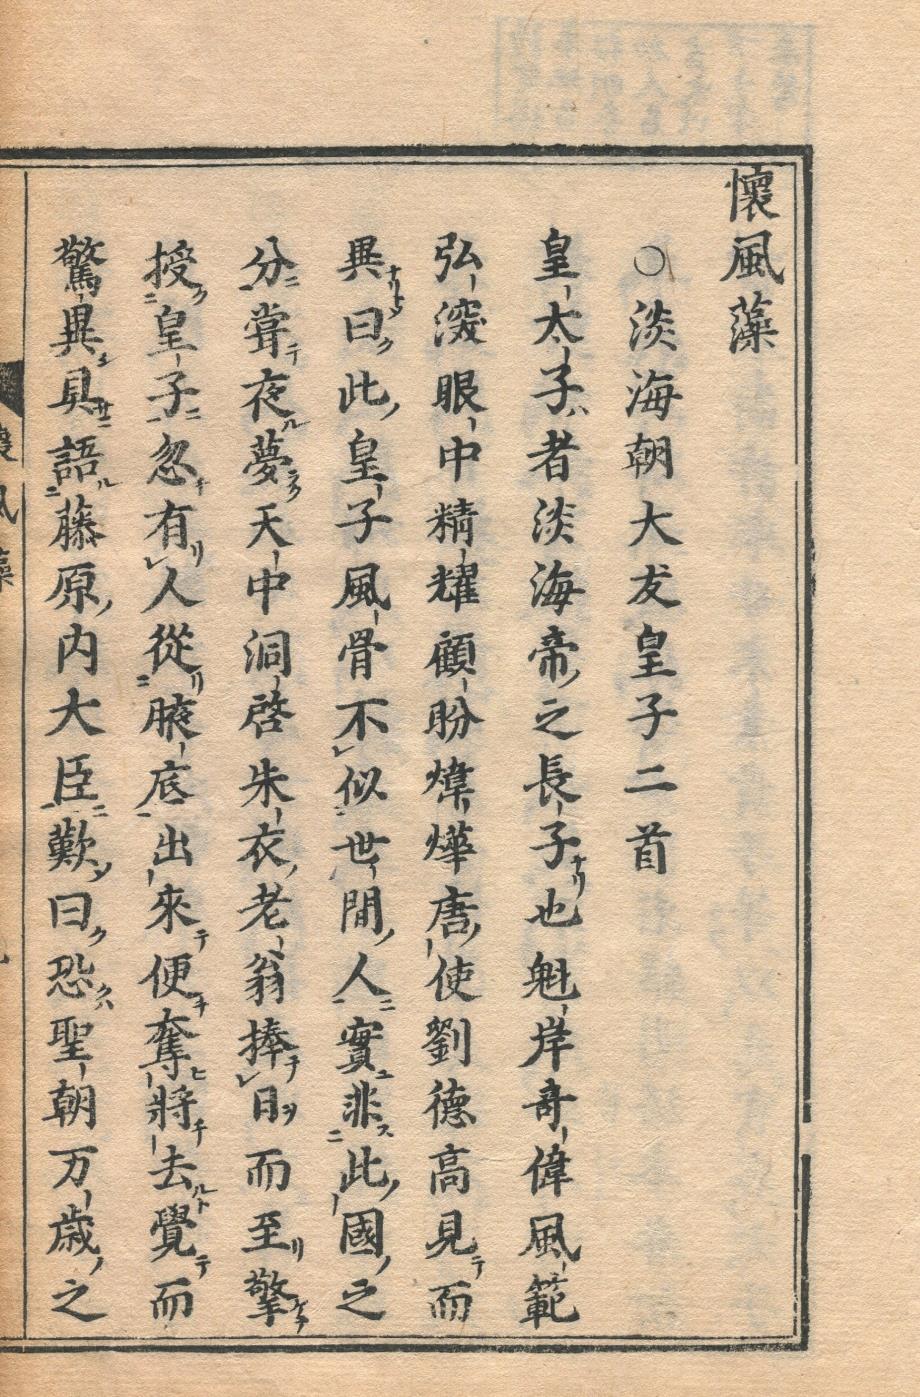 懷風藻
○淡海朝大友皇子二首
皇太子者淡海帝之長子也魁岸奇偉風範
弘深眼中精耀顧盼煒燁唐使劉德高見而
異曰此皇子風骨不似世間人實非此國之
分嘗夜夢天中洞啓朱衣老翁捧日而至擎
授皇子忽有人從腋底出來便奪將去覺而
驚異具語藤原內大臣歎曰恐聖朝万歲之